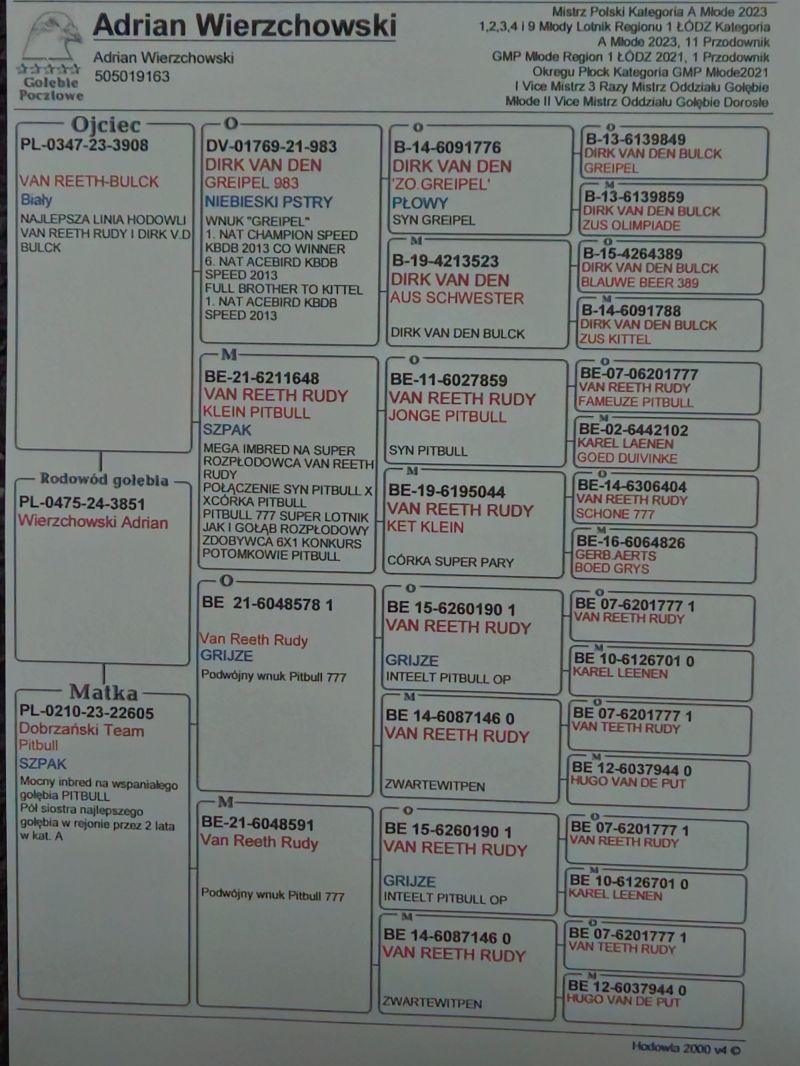 Adrian Wierzchowski
Adrian Wierzchowski
505019163
Gołębie
Pocztowe
Mistrz Polski Kategoria A Młode 2023
1,2,3,4 i 9 Młody Lotnik Regionu 1 ŁÓDZ Kategoria
A Młode 2023, 11 Przodownik
GMP Młode Region 1 ŁÓDZ 2021, 1 Przodownik
Okregu Płock Kategoria GMP Młode2021
I Vice Mistrz 3 Razy Mistrz Oddziału Gołębie
Młode II Vice Mistrz Oddziału Gołębie Dorosłe
Ojciec
PL-0347-23-3908
VAN REETH-BULCK
Biały
NAJLEPSZA LINIA HODOWLI
VAN REETH RUDY I DIRK V.D
BULCK
Rodowód gołębia
PL-0475-24-3851
Wierzchowski Adrian
Matka
PL-0210-23-22605
Dobrzański Team
Pitbull
SZPAK
Mocny inbred na wspaniałego
gołębia PITBULL
Pół siostra najlepszego
gołębia w rejonie przez 2 lata
w kat. A
O
DV-01769-21-983
DIRK VAN DEN
GREIPEL 983
NIEBIESKI PSTRY
WNUK "GREIPEL"
1. NAT CHAMPION SPEED
KBDB 2013 CO WINNER
6. NAT ACEBIRD KBDB
SPEED 2013
FULL BROTHER TO KITTEL
1. NAT ACEBIRD KBDB
SPEED 2013
M
BE-21-6211648
VAN REETH RUDY
KLEIN PITBULL
SZPAK
MEGA IMBRED NA SUPER
ROZPŁODOWCA VAN REETH
RUDY
POŁĄCZENIE SYN PITBULL X
XCÓRKA PITBULL
PITBULL 777 SUPER LOTNIK
JAK I GOŁĄB ROZPŁODOWY
ZDOBYWCA 6X1 KONKURS
POTOMKOWIE PITBULL
O
BE 21-6048578 1
Van Reeth Rudy
GRIJZE
Podwójny wnuk Pitbull 777
M
BE-21-6048591
Van Reeth Rudy
Podwójny wnuk Pitbull 777
O
B-14-6091776
DIRK VAN DEN
'ZO.GREIPEL'
PŁOWY
SYN GREIPEL
M
B-19-4213523
DIRK VAN DEN
AUS SCHWESTER
DIRK VAN DEN BULCK
O
BE-11-6027859
VAN REETH RUDY
JONGE PITBULL
SYN PITBULL
M
BE-19-6195044
VAN REETH RUDY
KET KLEIN
CÓRKA SUPER PARY
O
BE 15-6260190 1
VAN REETH RUDY
GRIJZE
INTEELT PITBULL OP
M
BE 14-6087146 0
VAN REETH RUDY
ZWARTEWITPEN
O
BE 15-6260190 1
VAN REETH RUDY
GRIJZE
INTEELT PITBULL OP
M
BE 14-6087146 0
VAN REETH RUDY
ZWARTEWITPEN
O
B-13-6139849
DIRK VAN DEN BULCK
GREIPEL
M
B-13-6139859
DIRK VAN DEN BULCK
ZUS OLIMPIADE
O
B-15-4264389
DIRK VAN DEN BULCK
BLAUWE BEER 389
M
B-14-6091788
DIRK VAN DEN BULCK
ZUS KITTEL
O
BE-07-06201777
VAN REETH RUDY
FAMEUZE PITBULL
M
BE-02-6442102
KAREL LAENEN
GOED DUIVINKE
O
BE-14-6306404
VAN REETH RUDY
SCHONE 777
M
BE-16-6064826
GERB.AERTS
BOED GRYS
O
BE 07-6201777 1
VAN REETH RUDY
M
BE 10-6126701 0
KAREL LEENEN
O
BE 07-6201777 1
VAN TEETH RUDY
M
BE 12-6037944 0
HUGO VAN DE PUT
O
BE 07-6201777 1
VAN REETH RUDY
M
BE 10-6126701 0
KAREL LEENEN
O
BE 07-6201777 1
VAN TEETH RUDY
M
BE 12-6037944 0
HUGO VAN DE PUT
Hodowla 2000 v4 ©